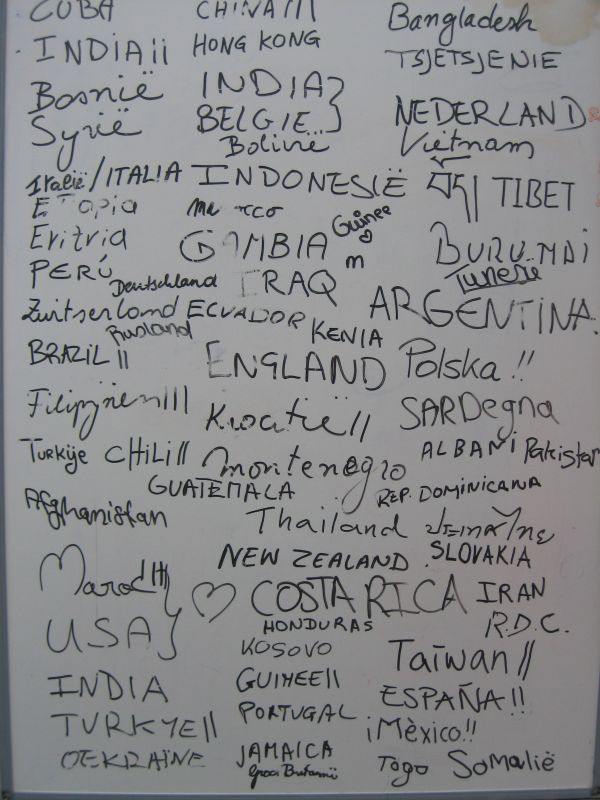 CUBA CHINA III Bangladesh
INDIA II HONG KONG TSJETSJENIE
Bosnië INDIA
Syrië BELGIE NEDERLAND
Bolivië Vietnam
Italië/ITALIA INDONESIË བོད། TIBET
Guinee
Eritria GAMBIA
PERÚ Deutschland IRAQ Tunesië
Zwitserland ECUADOR ARGENTINA
Rusland KENIA
BRAZIL II ENGLAND Polska !!
Filipijnen III Kroatië II SARDegna
Turkije CHILI II montenegro ALBANI Pakistan
GUATEMALA REP. DOMINICANA
Afghanistan Thailand
NEW ZEALAND SLOVAKIA
Maroc COSTA RICA IRAN
HONDURAS R.D.C.
USA KOSOVO Taïwan II
INDIA GUINEE II ESPAÑA !!
TURKYE II PORTUGAL ¡Mèxico!!
OEKRAÏNE JAMAICA Togo Somalië